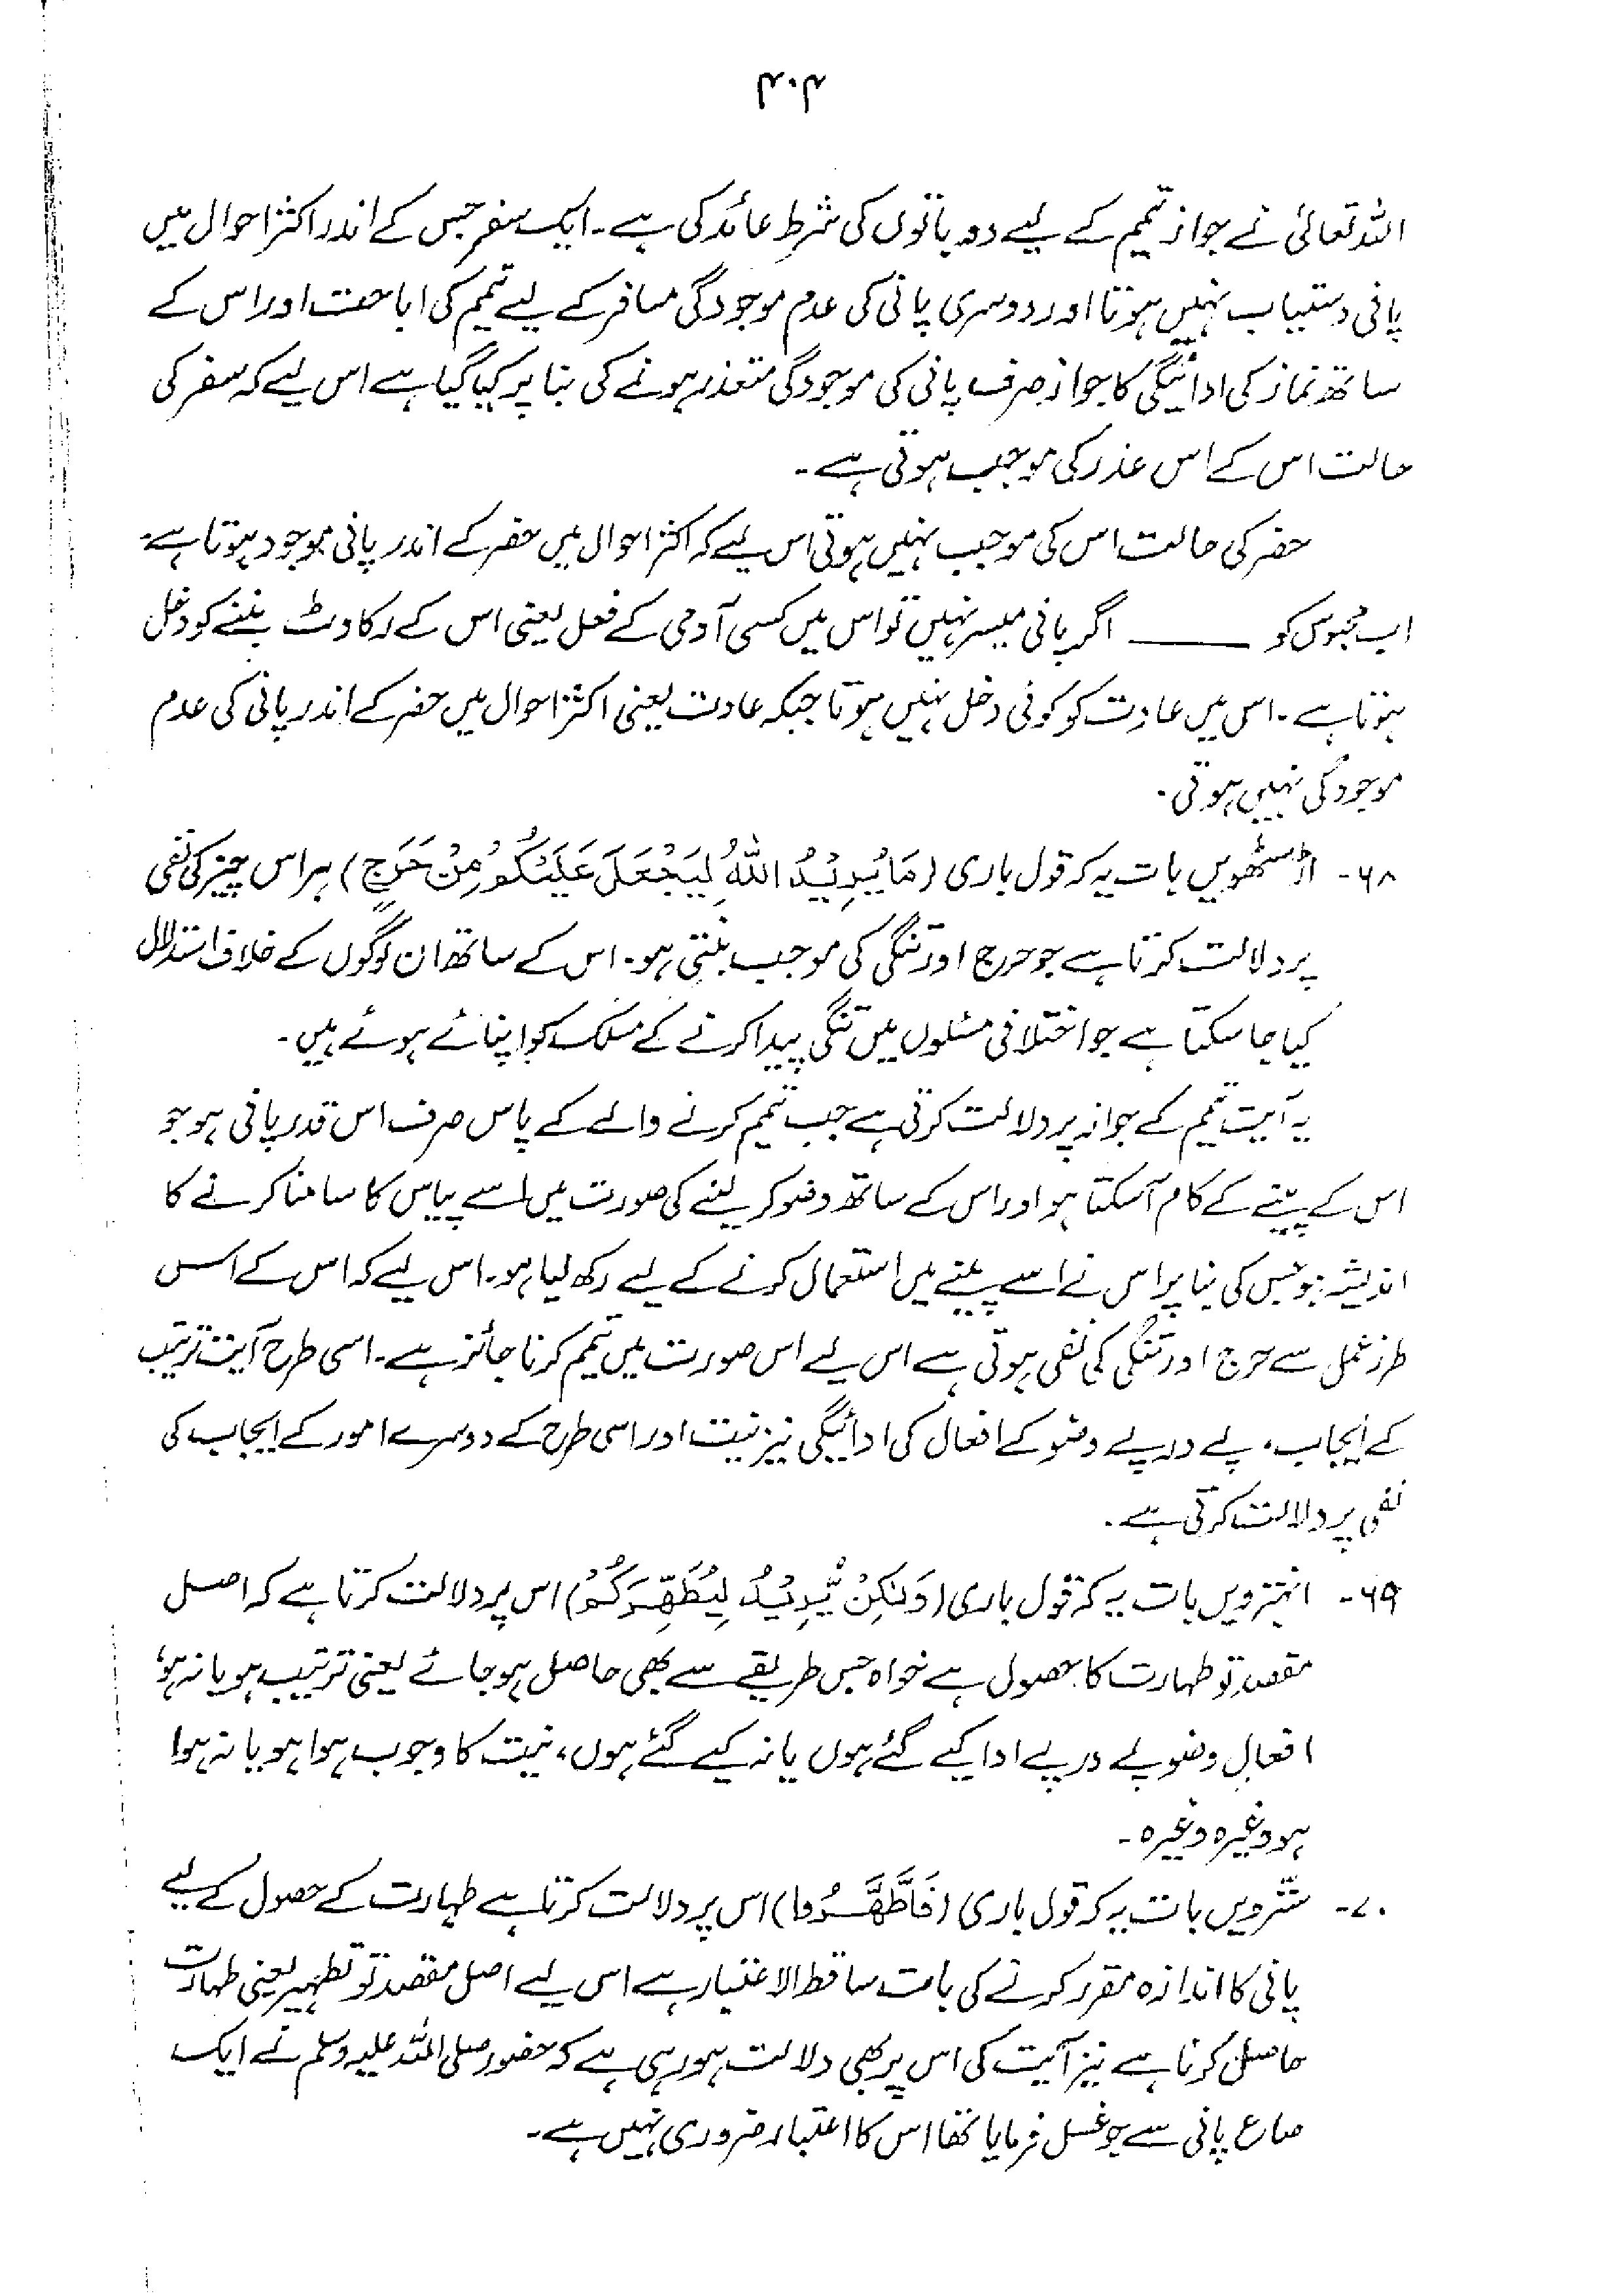 ۴۰۴
اللہ تعالیٰ نے جواز تیمم کے لیے دو باتوں کی شرط عائد کی ہے۔ ایک سفر جس کے اندر اکثر احوال میں
پانی دستیاب نہیں ہوتا اور دوسری پانی کی عدم موجودگی مسافر کے لیے تیمم کی اباحت اور اس کے
ساتھ نماز کی ادائیگی کا جواز صرف پانی کی موجودگی متعذر ہونے کی بنا پر کیا گیا ہے اس لیے کہ سفر کی
حالت اس کے اس عذر کی موجب ہوتی ہے۔
حضر کی حالت اس کی موجب نہیں ہوتی اس لیے کہ اکثر احوال میں حضر کے اندر پانی موجود ہوتا ہے۔
اب محبوس کو ــــــــ اگر پانی میسر نہیں تو اس میں کسی آدمی کے فعل یعنی اس کے رکاوٹ بننے کو دخل
ہوتا ہے۔ اس میں عادت کو کوئی دخل نہیں ہوتا جبکہ عادت یعنی اکثر احوال میں حضر کے اندر پانی کی عدم
موجودگی نہیں ہوتی۔
۶۸۔ اڑسٹھویں بات یہ کہ قول باری (مَا يُرِيْدُ اللّٰهُ لِيَجْعَلَ عَلَيْكُمْ مِنْ حَرَجٍ) ہر اس چیز کی نفی
پر دلالت کرتا ہے جو حرج اور تنگی کی موجب بنتی ہو۔ اس کے ساتھ ان لوگوں کے خلاف استدلال
کیا جا سکتا ہے جو اختلافی مسئلوں میں تنگی پیدا کرنے کے مسلک کو اپنائے ہوئے ہیں۔
یہ آیت تیمم کے جواز پر دلالت کرتی ہے جب تیمم کرنے والے کے پاس صرف اس قدر پانی ہو جو
اس کے پینے کے کام آسکتا ہو اور اس کے ساتھ وضو کر لینے کی صورت میں اسے پیاس کا سامنا کرنے کا
اندیشہ ہو جس کی بنا پر اس نے اسے پینے میں استعمال کرنے کے لیے رکھ لیا ہو۔ اس لیے کہ اس کے اس
طرز عمل سے حرج اور تنگی کی نفی ہوتی ہے اس لیے اس صورت میں تیمم کرنا جائز ہے۔ اسی طرح آیت ترتیب
کے ایجاب، پے در پے وضو کے افعال کی ادائیگی نیز نیت اور اسی طرح کے دوسرے امور کے ایجاب کی
نفی پر دلالت کرتی ہے۔
۶۹۔ انہترویں بات یہ کہ قول باری (وَلٰكِنْ يُّرِيْدُ لِيُطَهِّرَكُمْ) اس پر دلالت کرتا ہے کہ اصل
مقصد تو طہارت کا حصول ہے خواہ جس طریقے سے بھی حاصل ہو جائے یعنی ترتیب ہو یا نہ ہو،
افعال وضو پے در پے ادا کیے گئے ہوں یا نہ کیے گئے ہوں، نیت کا وجوب ہوا ہو یا نہ ہوا
ہو وغیرہ وغیرہ۔
۷۰۔ سترویں بات یہ کہ قول باری (فَاطَّهَّرُوا) اس پر دلالت کرتا ہے طہارت کے حصول کے لیے
پانی کا اندازہ مقرر کرنے کی بات ساقط الاعتبار ہے اس لیے اصل مقصد تو تطہیر یعنی طہارت
حاصل کرنا ہے نیز آیت کی اس پر بھی دلالت ہو رہی ہے کہ حضور صلی اللہ علیہ وسلم نے ایک
صاع پانی سے جو غسل فرمایا تھا اس کا اعتبار ضروری نہیں ہے۔